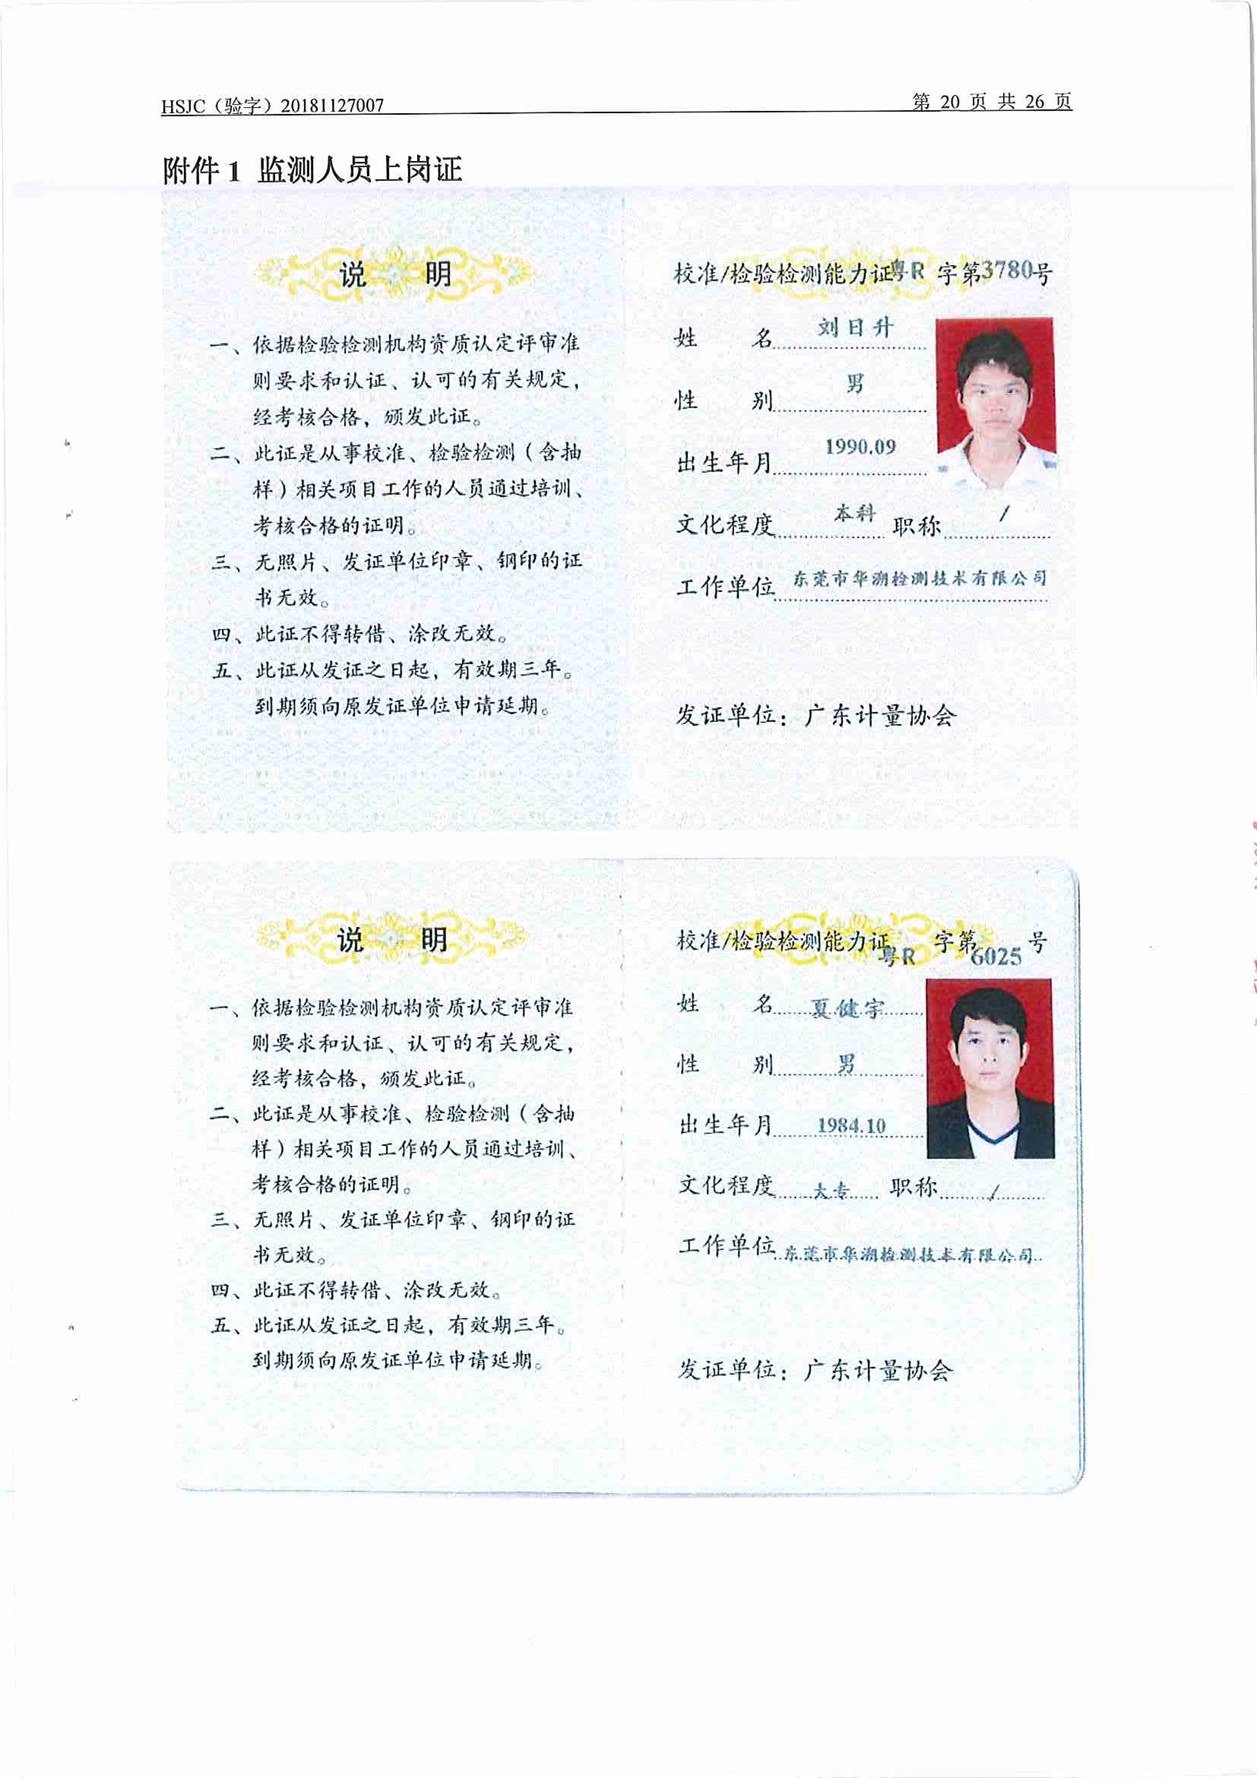 HSJC（验字）20181127007
第 20 页 共 26 页
附件 1 监测人员上岗证
说 明
一、依据检验检测机构资质认定评审准
则要求和认证、认可的有关规定，
经考核合格，颁发此证。
二、此证是从事校准、检验检测（含抽
样）相关项目工作的人员通过培训、
考核合格的证明。
三、无照片、发证单位印章、钢印的证
书无效。
四、此证不得转借、涂改无效。
五、此证从发证之日起，有效期三年。
到期须向原发证单位申请延期。
校准/检验检测能力证粤R 字第3780号
姓 名 刘日升
性 别 男
出生年月 1990.09
文化程度 本科 职称 /
工作单位 东莞市华溯检测技术有限公司
发证单位：广东计量协会
说 明
一、依据检验检测机构资质认定评审准
则要求和认证、认可的有关规定，
经考核合格，颁发此证。
二、此证是从事校准、检验检测（含抽
样）相关项目工作的人员通过培训、
考核合格的证明。
三、无照片、发证单位印章、钢印的证
书无效。
四、此证不得转借、涂改无效。
五、此证从发证之日起，有效期三年。
到期须向原发证单位申请延期。
校准/检验检测能力证粤R 字第6025 号
姓 名 夏健宇
性 别 男
出生年月 1984.10
文化程度 大专 职称 /
工作单位 东莞市华溯检测技术有限公司
发证单位：广东计量协会